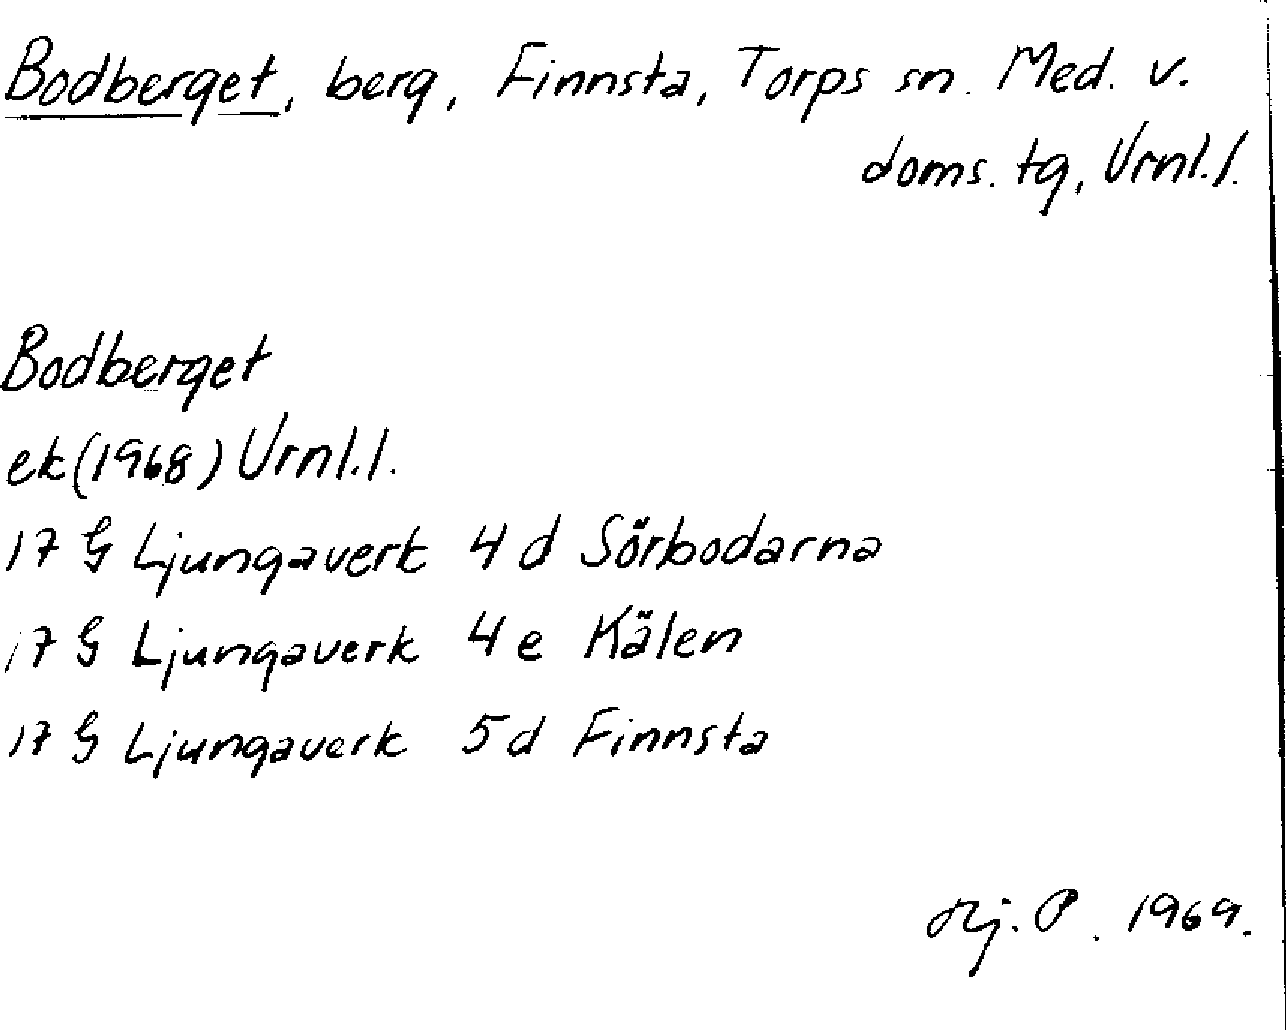 Bodberget, berg, Finnsta, Torps sn. Med. v.
doms. tg, Vrnl.l.
Bodberget
ek(1968) Vrnl.l.
17 G Ljungaverk 4 d Sörbodarna
17 G Ljungaverk 4 e Kälen
17 G Ljungaverk 5 d Finnsta
Hj. P. 1969.